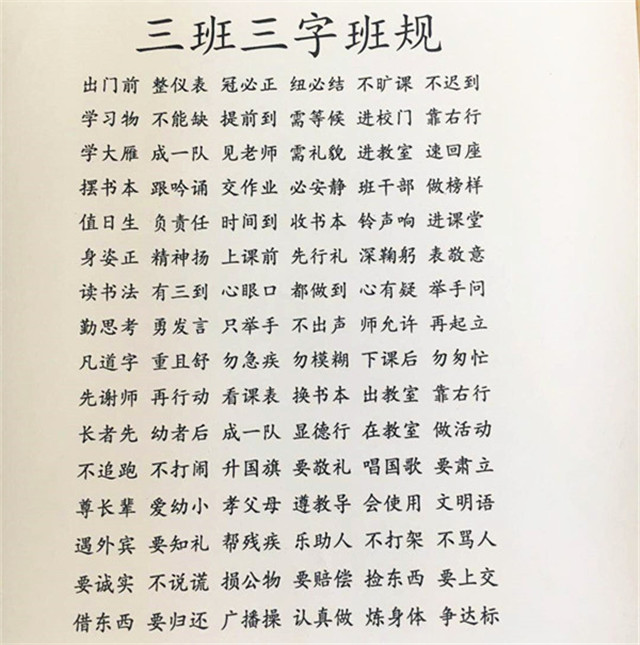 三班三字班规
出门前 整仪表 冠必正 纽必结 不旷课 不迟到
学习物 不能缺 提前到 需等候 进校门 靠右行
学大雁 成一队 见老师 需礼貌 进教室 速回座
摆书本 跟吟诵 交作业 必安静 班干部 做榜样
值日生 负责任 时间到 收书本 铃声响 进课堂
身姿正 精神扬 上课前 先行礼 深鞠躬 表敬意
读书法 有三到 心眼口 都做到 心有疑 举手问
勤思考 勇发言 只举手 不出声 师允许 再起立
凡道字 重且舒 勿急疾 勿模糊 下课后 勿匆忙
先谢师 再行动 看课表 换书本 出教室 靠右行
长者先 幼者后 成一队 显德行 在教室 做活动
不追跑 不打闹 升国旗 要敬礼 唱国歌 要肃立
尊长辈 爱幼小 孝父母 遵教导 会使用 文明语
遇外宾 要知礼 帮残疾 乐助人 不打架 不骂人
要诚实 不说谎 损公物 要赔偿 捡东西 要上交
借东西 要归还 广播操 认真做 炼身体 争达标